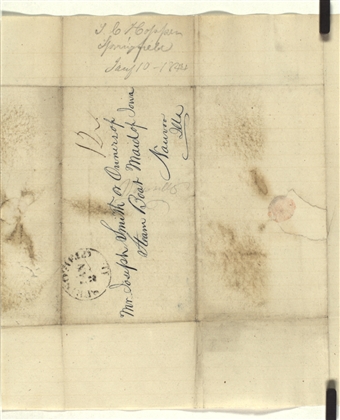 Springfield
Jany 10 - 184
12
Mr Joseph Smith or Owners of
Steam Boat Maid of Iowa
Nauvoo
Ills
JAN